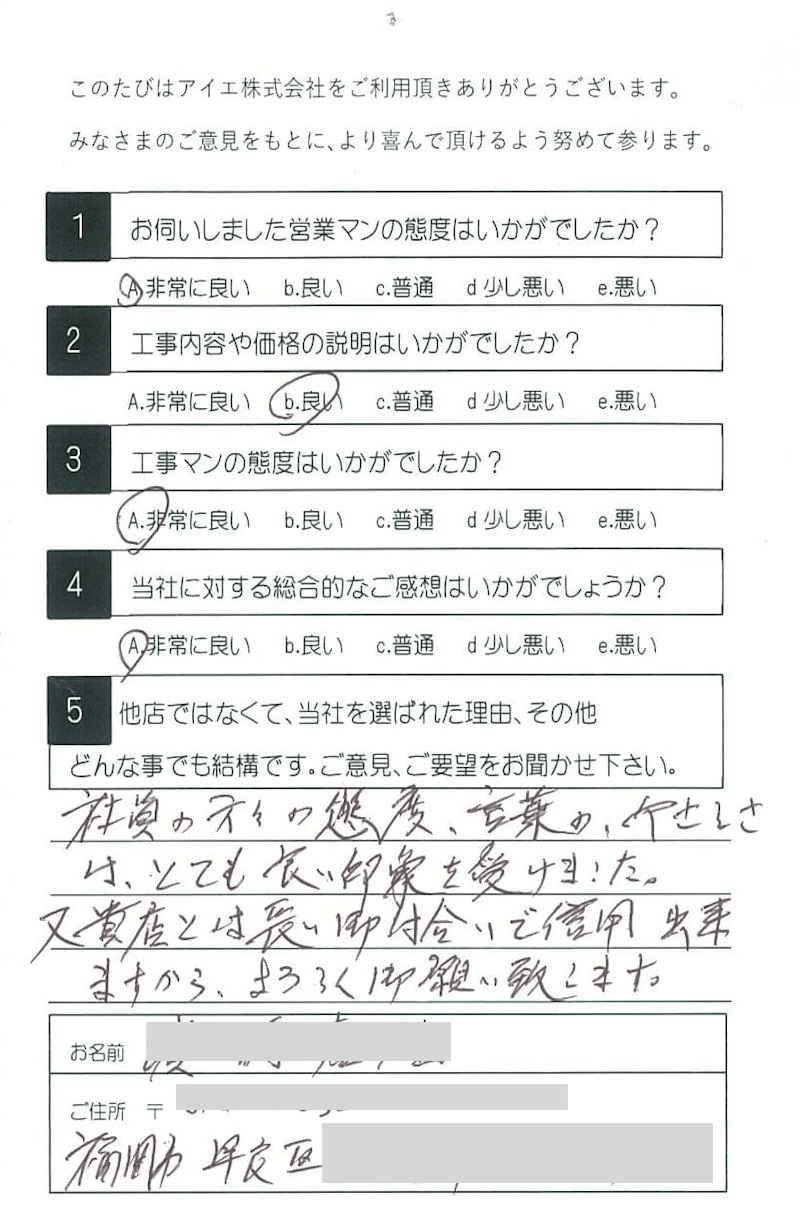 このたびはアイエ株式会社をご利用頂きありがとうございます。
みなさまのご意見をもとに、より喜んで頂けるよう努めて参ります。
1 お伺いしました営業マンの態度はいかがでしたか？
A.非常に良い b.良い c.普通 d 少し悪い e.悪い
2 工事内容や価格の説明はいかがでしたか？
A.非常に良い b.良い c.普通 d 少し悪い e.悪い
3 工事マンの態度はいかがでしたか？
A.非常に良い b.良い c.普通 d 少し悪い e.悪い
4 当社に対する総合的なご感想はいかがでしょうか？
A.非常に良い b.良い c.普通 d 少し悪い e.悪い
5 他店ではなくて、当社を選ばれた理由、その他
どんな事でも結構です。ご意見、ご要望をお聞かせ下さい。
社員の方々の態度、言葉の、やさしさ
は、とても良い印象を受けました。
又貴店とは長い御付合いで信用出来
ますから、よろしく御願い致します。
お名前
ご住所 〒
福岡市 早良区